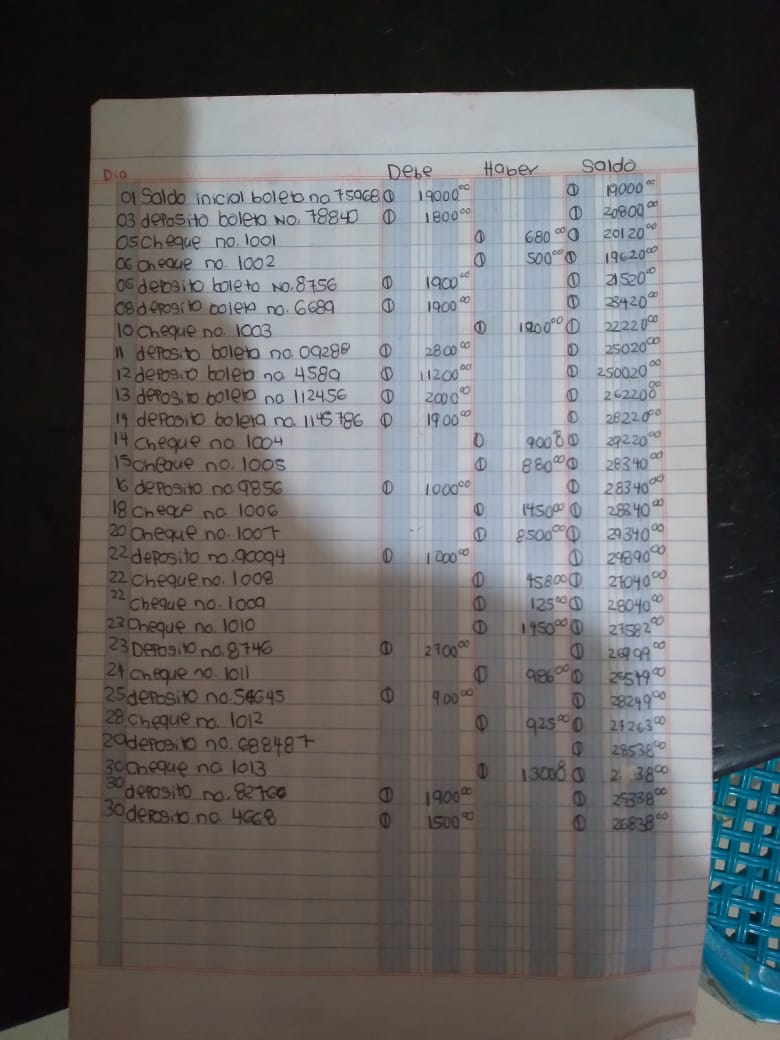 Dia Debe Haber Saldo
01 Saldo inicial boleta no 75968 Q 19000.00 Q 19000.00
03 deposito boleta No. 78840 Q 1800.00 Q 20800.00
05 Cheque no. 1001 Q 680.00 Q 20120.00
06 Cheque no. 1002 Q 500.00 Q 19620.00
06 deposito boleto No. 8756 Q 1900.00 Q 21520.00
08 deposito boleta no. 6689 Q 1900.00 Q 23420.00
10 Cheque no. 1003 Q 1200.00 Q 22220.00
11 deposito boleta no. 09288 Q 2800.00 Q 25020.00
12 deposito boleta no. 4589 Q 11200.00 Q 250020.00
13 deposito boleta no 112456 Q 2000.00 Q 26220.00
14 deposito boleta no. 1145786 Q 1900.00 Q 28220.00
14 Cheque no 1004 Q 900.00 Q 29220.00
15 Cheque no. 1005 Q 880.00 Q 28340.00
16 deposito no. 9856 Q 1000.00 Q 28340.00
18 Cheque no. 1006 Q 1450.00 Q 28840.00
20 Cheque no. 1007 Q 8500.00 Q 29340.00
22 deposito no. 90094 Q 1000.00 Q 29890.00
22 Cheque no. 1008 Q 458.00 Q 27040.00
22 Cheque no. 1009 Q 125.00 Q 28040.00
23 Cheque no. 1010 Q 1450.00 Q 27582.00
23 Deposito no. 8746 Q 2700.00 Q
24 Cheque no. 1011 Q 986.00 Q
25 deposito no. 54645 Q 900.00 Q 28249.00
28 Cheque no. 1012 Q 925.00 Q 27263.00
29 deposito no. 688487 Q 28538.00
30 Cheque no 1013 Q 1300.00 Q
30 deposito no. 82766 Q 1900.00 Q 25338.00
30 deposito no. 4668 Q 1500.00 Q 26838.00